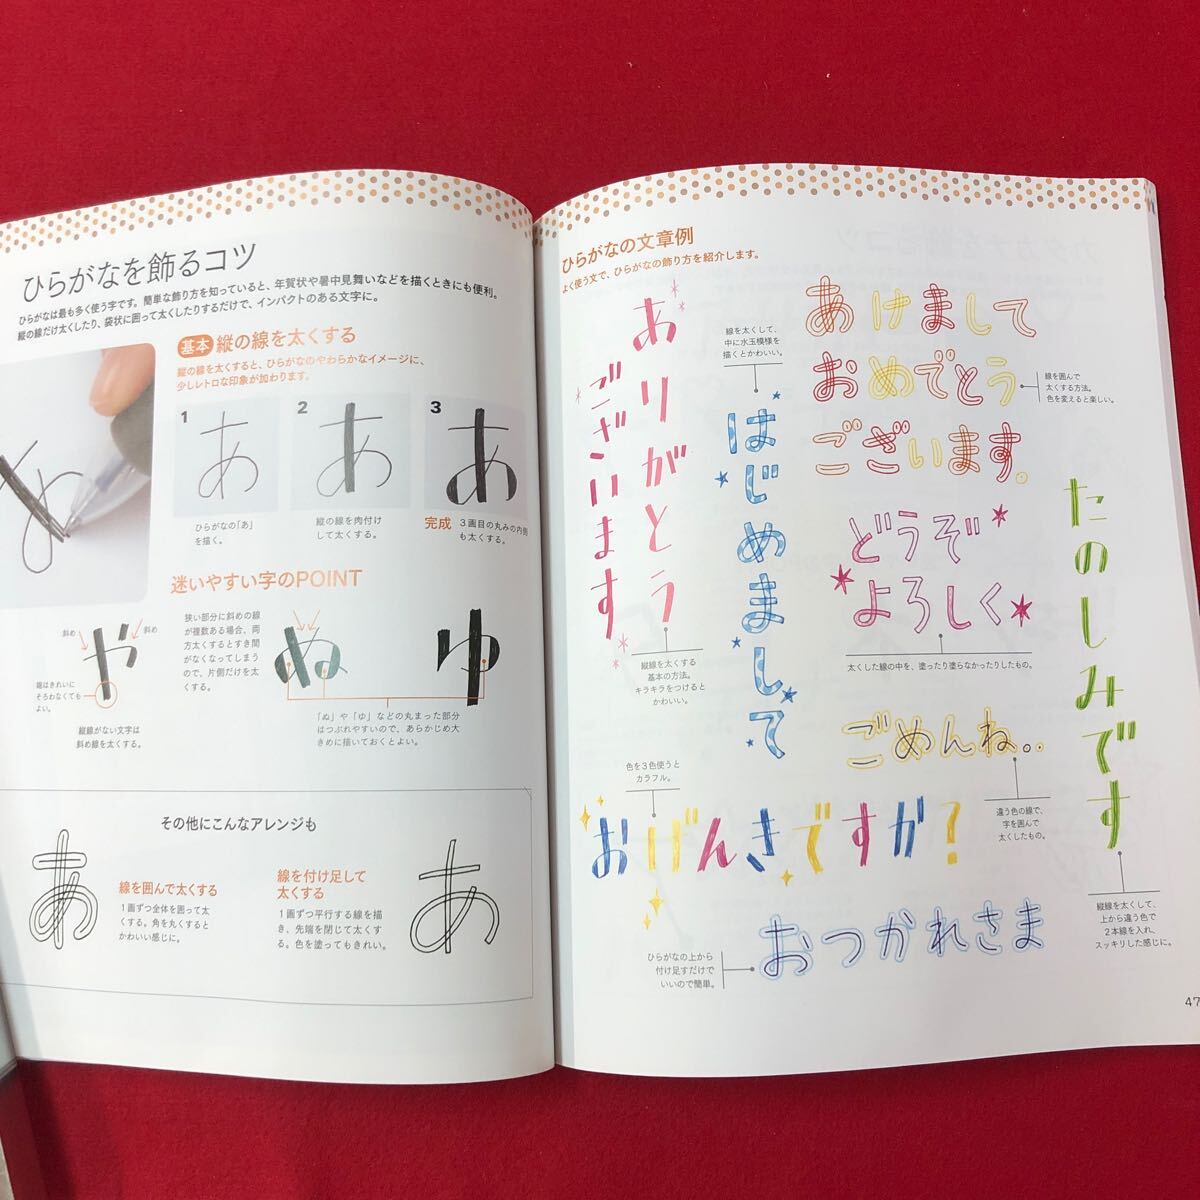 ひらがなを飾るコツ
ひらがなは最も多く使う字です。簡単な飾り方を知っていると、年賀状や暑中見舞いなどを描くときにも便利。
縦の線だけ太くしたり、袋状に囲って太くしたりするだけで、インパクトのある文字に。
基本 縦の線を太くする
縦の線を太くすると、ひらがなのやわらかなイメージに、
少しレトロな印象が加わります。
1
あ
ひらがなの「あ」
を描く。
2
あ
縦の線を肉付け
して太くする。
3
あ
完成 3画目の丸みの内側
も太くする。
迷いやすい字のPOINT
斜め
斜め
や
端はきれいに
そろわなくても
よい。
縦線がない文字は
斜め線を太くする。
狭い部分に斜めの線
が複数ある場合、両
方太くするとすき間
がなくなってしまう
ので、片側だけを太
くする。
ぬ
ゆ
「ぬ」や「ゆ」などの丸まった部分
はつぶれやすいので、あらかじめ大
きめに描いておくとよい。
その他にこんなアレンジも
あ
線を囲んで太くする
1画ずつ全体を囲って太
くする。角を丸くすると
かわいい感じに。
線を付け足して
太くする
1画ずつ平行する線を描
き、先端を閉じて太くす
る。色を塗ってもきれい。
あ
ひらがなの文章例
よく使う文で、ひらがなの飾り方を紹介します。
ありがとう
ございます
縦線を太くする
基本の方法。
キラキラをつけると
かわいい。
線を太くして、
中に水玉模様を
描くとかわいい。
はじめまして
あけまして
おめでとう
ございます。
線を囲んで
太くする方法。
色を変えると楽しい。
どうぞ
よろしく
太くした線の中を、塗ったり塗らなかったりしたもの。
たのしみです
縦線を太くして、
上から違う色で
2本線を入れ、
スッキリした感じに。
ごめんね..
違う色の線で、
字を囲んで
太くしたもの。
色を3色使うと
カラフル。
おげんきですか?
おつかれさま
ひらがなの上から
付け足すだけで
いいので簡単。
47